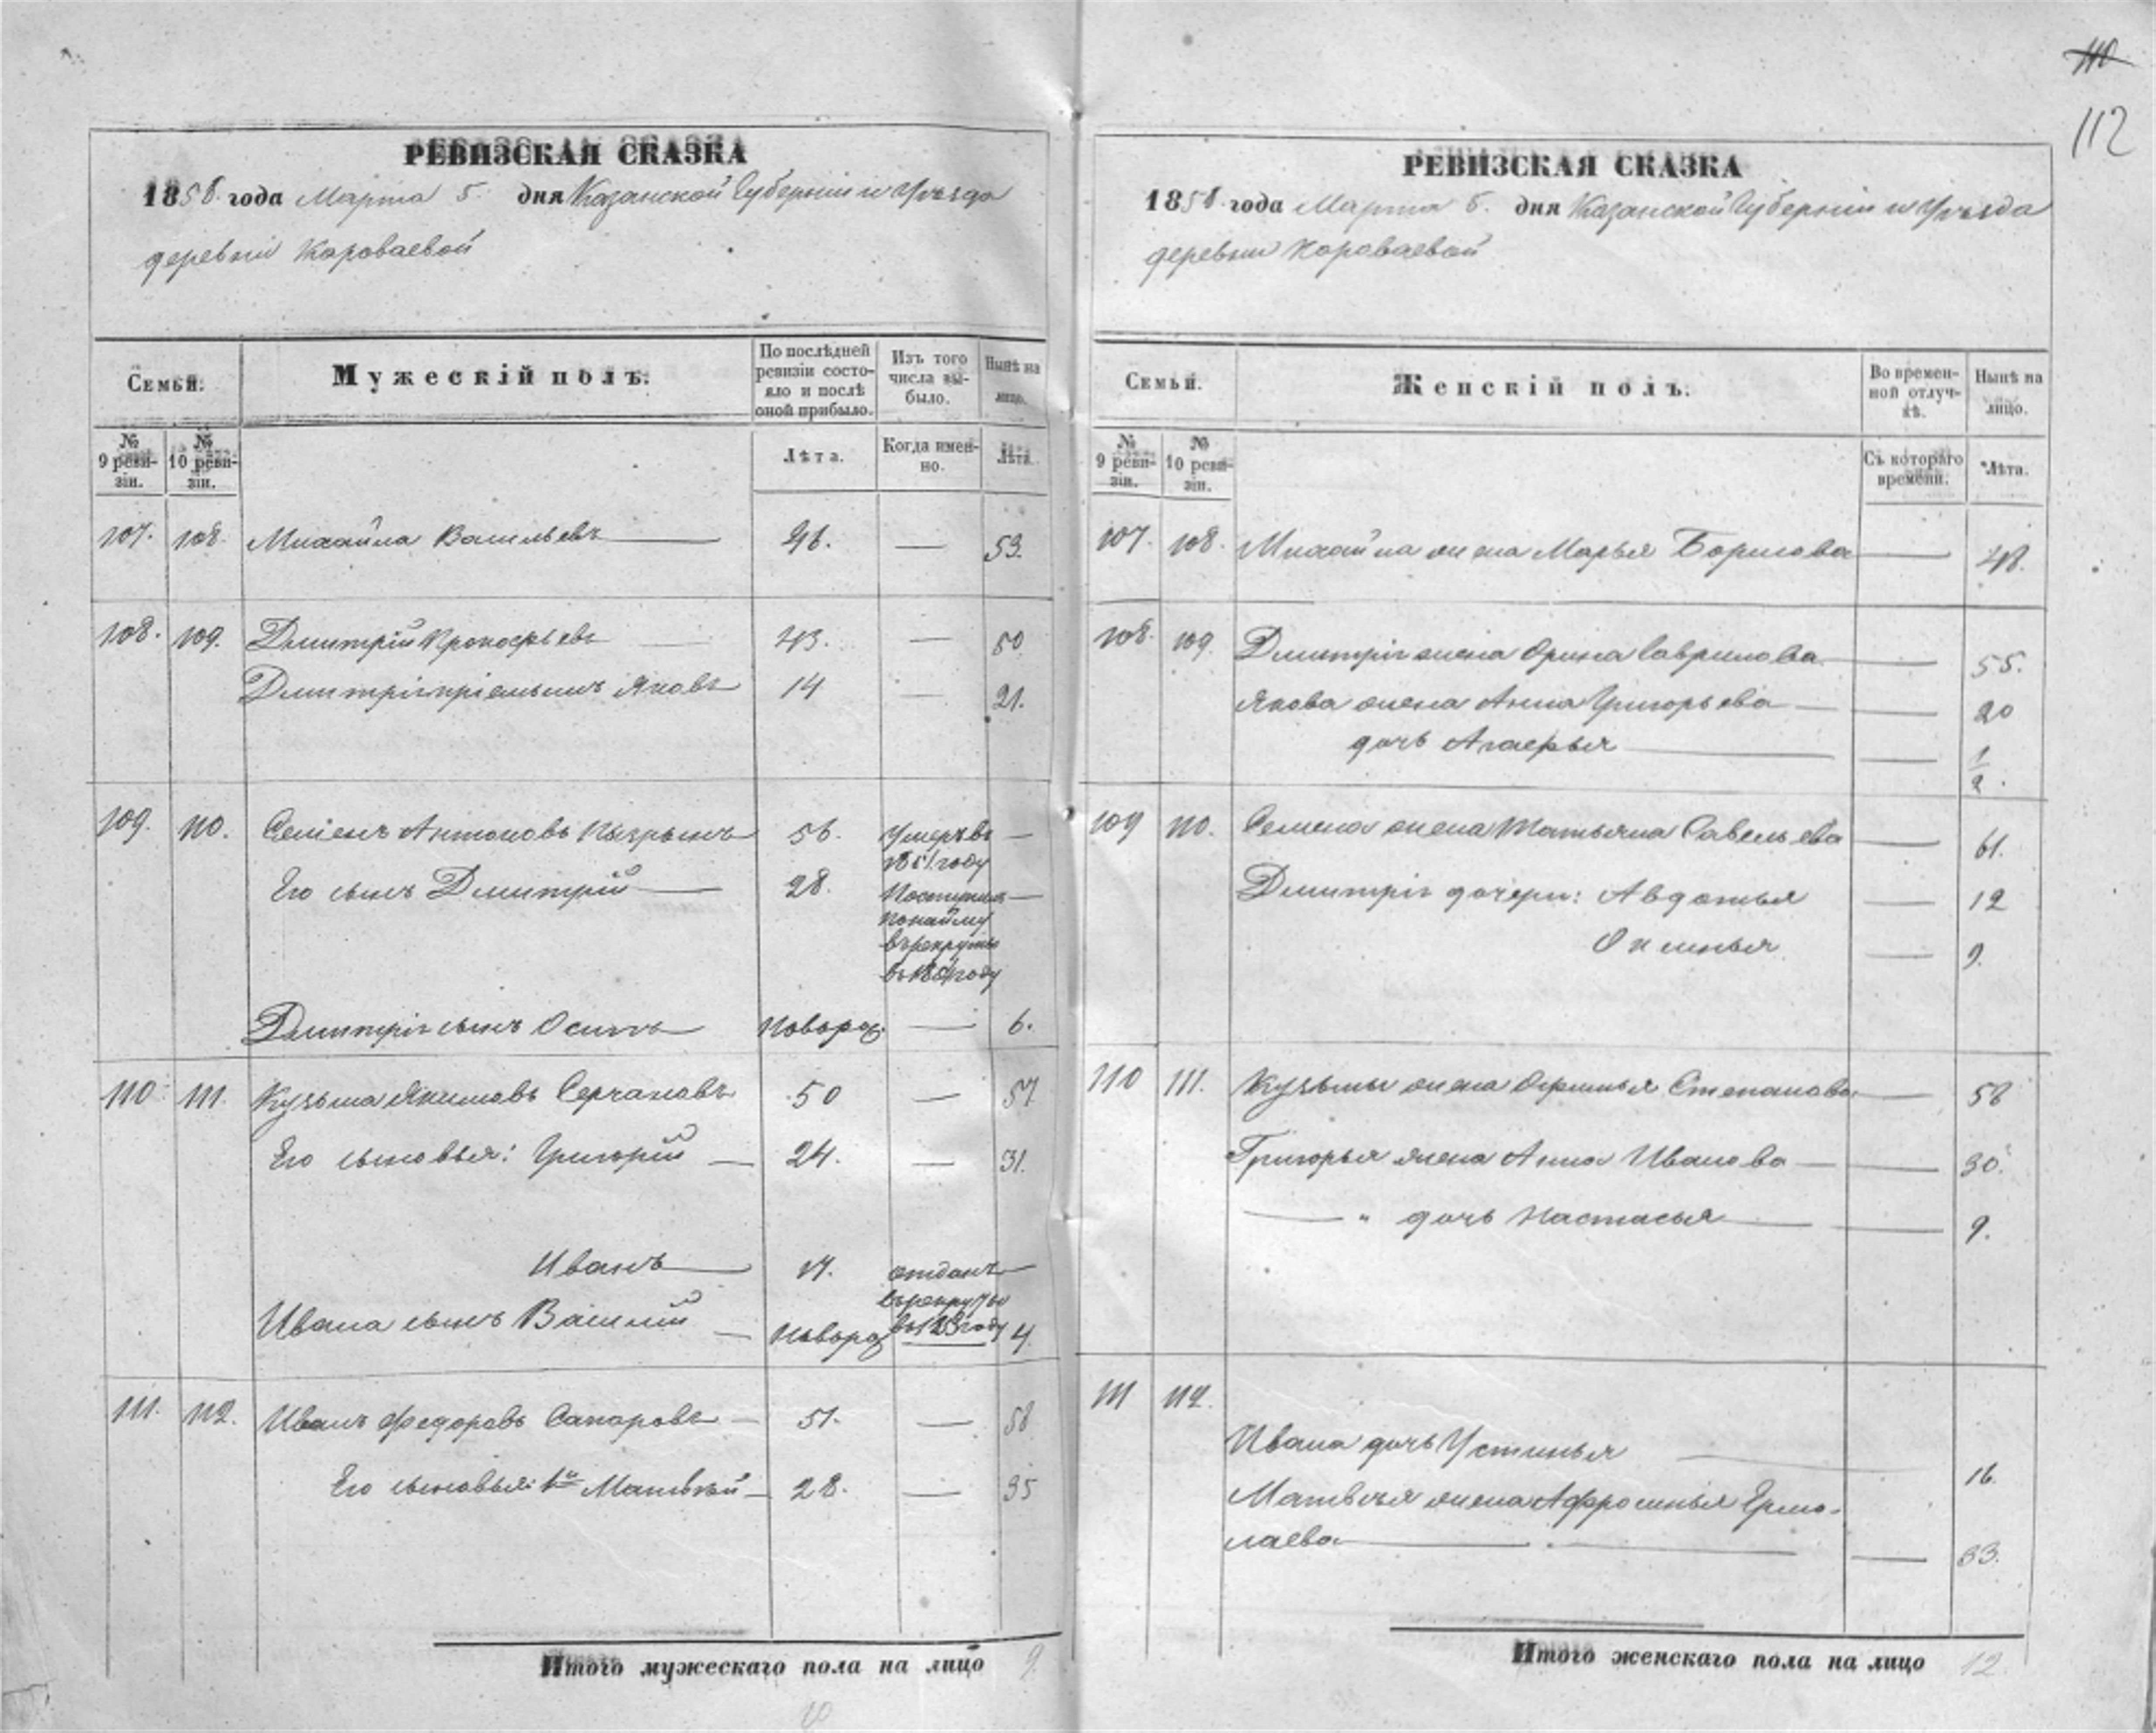 110
112
РЕВИЗСКАЯ СКАЗКА
1858 года Марта 5. дня Казанской Губерніи и Уѣзда
деревни Караваевой
Семьи.
Мужескій полъ.
По послѣдней ревизіи состояло и послѣ оной прибыло.
Изъ того числа выбыло.
Нынѣ на лицо.
№ 9 ревизіи.
№ 10 ревизіи.
Лѣта.
Когда именно.
Лѣта.
107. 108. Михайла Васильевъ 46. — 53.
108. 109. Дмитрій Прокофьевъ 43. — 50
Дмитрія пріемышъ Яковъ 14 — 21.
109. 110. Семенъ Антоновъ 56. Умеръ въ —
1851 году
Его сынъ Дмитрій 28. Поступилъ —
по найму
въ рекруты
въ 1851 году
Дмитрія сынъ Осипъ Новорож. — 6.
110 111. Кузьма Якимовъ Серчановъ 50 — 57.
Его сыновья: Григорій 24. — 31.
Иванъ 17. отданъ —
въ рекруты
въ году
Ивана сынъ Василій Новорож — 4.
111. 112. Иванъ Федоровъ Сапаровъ 51. — 58
Его сыновья: 1й Матвѣй 28. — 35
Итого мужескаго пола на лицо 9.
РЕВИЗСКАЯ СКАЗКА
1858 года Марта 5. дня Казанской Губерніи и Уѣзда
деревни Караваевой
Семьи.
Женскій полъ.
Во временной отлучкѣ.
Нынѣ на лицо.
№ 9 ревизіи.
№ 10 ревизіи.
Съ котораго времени.
Лѣта.
107. 108. Михайла жена Марья Борисова — 48.
108. 109. Дмитрія жена Орина Гаврилова — 55.
Якова жена Анна Григорьева — 20
дочь Агафья — 1/2.
109 110. Семена жена Татьяна Савельева — 61.
Дмитрія дочери: Авдотья — 12
Оксинья — 9.
110 111. Кузьмы жена Офимья Степанова — 58
Григорья жена Анна Иванова — 30.
— " дочь Настасья — 9.
111 112.
Ивана дочь Устинья — 16.
Матвѣя жена Афросинья Ермо-
лаева — 33.
Итого женскаго пола на лицо 12.